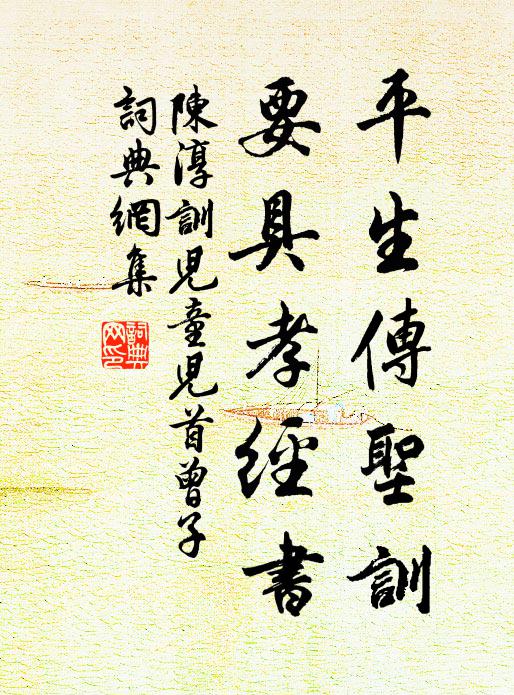 平生傳聖訓
要具孝經書
陳淳訓兒童兒首曾子
詞典網集
詞典
网印